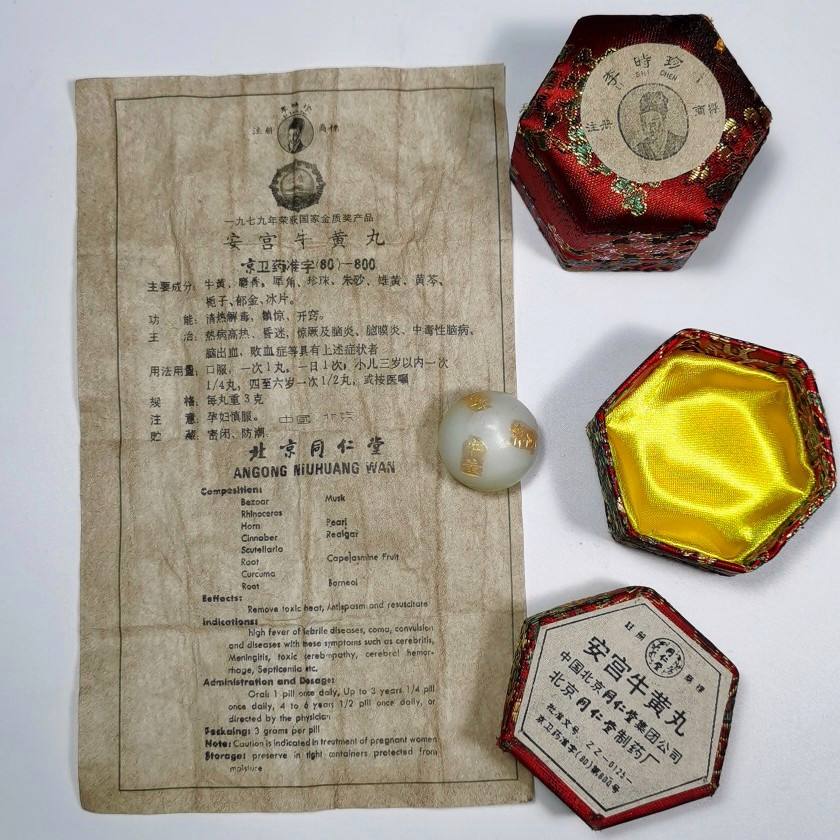 李時珍
注册 商標
一九七九年荣获国家金质奖产品
安宫牛黄丸
京卫药准字(80)-800
主要成分: 牛黄、麝香、犀角、珍珠、朱砂、雄黄、黄芩、
栀子、郁金、冰片。
功 能: 清热解毒、镇惊、开窍。
主 治: 热病高热、昏迷、惊厥及脑炎、脑膜炎、中毒性脑病、
脑出血、败血症等具有上述症状者
用法用量: 口服,一次1丸,一日1次,小儿三岁以内一次
1/4丸,四至六岁一次1/2丸,或按医嘱
规 格: 每丸重3克
注 意: 孕妇慎服。 中國 北京
贮 藏: 密闭、防潮
北京同仁堂
ANGONG NiUHUANG WAN
Composition:
Bezoar Musk
Rhinoceros
Horn Pearl
Cinnaber Realgar
Scutellaria
Root Capejasmine Fruit
Curcuma
Root Borneol
Eeffects:
Remove toxic heat, Antispasm and resuscitate
indications:
high fever of febrile diseases, coma, convulsion
and diseases with these symptoms such as cerebritis,
Meningitis, toxic cerebropathy, cerebral hemor-
rhage, Septicemia etc.
Administration and Dosage:
Oral: 1 pill once daily, Up to 3 years 1/4 pill
once daily, 4 to 6 years 1/2 pill once daily, or
directed by the physician
Packaing: 3 grams per pill
Note: Caution is indicated in treatment of pregnant women
Storage: preserve in tight containers protected from
moisture
李時珍
SHI CHEN
注册 商標
同仁堂
安宫牛黄丸
中国北京同仁堂集团公司
北京同仁堂制药厂
批准文号: ZZ-0125-
京卫药准字(80)第800号